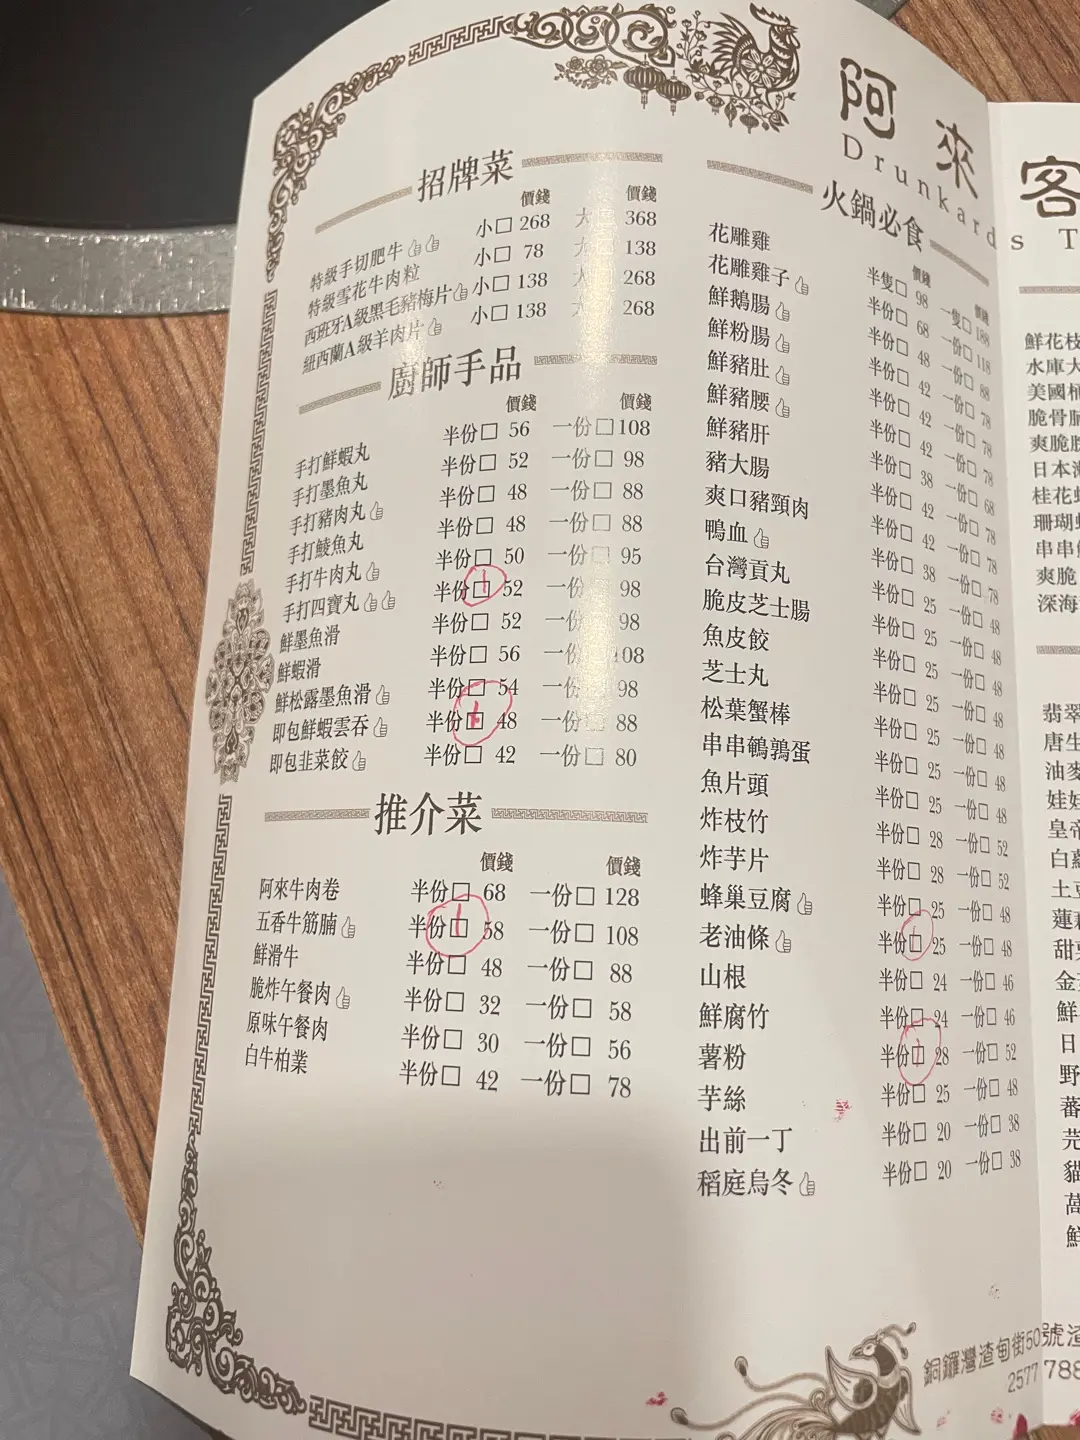 阿來
Drunkards T
招牌菜
價錢 價錢
特級手切肥牛 小□ 268 大 368
特級雪花牛肉粒 小□ 78 大 138
西班牙A級黑毛豬梅片 小□ 138 大 268
紐西蘭A級羊肉片 小□ 138 大 268
廚師手品
價錢 價錢
手打鮮蝦丸 半份□ 56 一份□ 108
手打墨魚丸 半份□ 52 一份□ 98
手打豬肉丸 半份□ 48 一份□ 88
手打鯪魚丸 半份□ 48 一份□ 88
手打牛肉丸 半份□ 50 一份□ 95
手打四寶丸 半份□ 1 52 一份 98
鮮墨魚滑 半份□ 52 一份 98
鮮蝦滑 半份□ 56 一份 108
鮮松露墨魚滑 半份□ 54 一份 98
即包鮮蝦雲吞 半份□ 1 48 一份□ 88
即包韭菜餃 半份□ 42 一份□ 80
推介菜
價錢 價錢
阿來牛肉卷 半份□ 68 一份□ 128
五香牛筋腩 半份□ 1 58 一份□ 108
鮮滑牛 半份□ 48 一份□ 88
脆炸午餐肉 半份□ 32 一份□ 58
原味午餐肉 半份□ 30 一份□ 56
白牛柏業 半份□ 42 一份□ 78
火鍋必食
價錢 價錢
花雕雞 半隻□ 98 一隻□ 188
花雕雞子 半份□ 68 一份□ 118
鮮鵝腸 半份□ 48 一份□ 88
鮮粉腸 半份□ 42 一份□ 78
鮮豬肚 半份□ 42 一份□ 78
鮮豬腰 半份□ 42 一份□ 78
鮮豬肝 半份□ 38 一份□ 68
豬大腸 半份□ 42 一份□ 78
爽口豬頸肉 半份□ 42 一份□ 78
鴨血 半份□ 38 一份□ 78
台灣貢丸 半份□ 25 一份□ 48
脆皮芝士腸 半份□ 25 一份□ 48
魚皮餃 半份□ 25 一份□ 48
芝士丸 半份□ 25 一份□ 48
松葉蟹棒 半份□ 25 一份□ 48
串串鵪鶉蛋 半份□ 25 一份□ 48
魚片頭 半份□ 25 一份□ 48
炸枝竹 半份□ 28 一份□ 52
炸芋片 半份□ 28 一份□ 52
蜂巢豆腐 半份□ 25 一份□ 48
老油條 半份□ 1 25 一份□ 48
山根 半份□ 24 一份□ 46
鮮腐竹 半份□ 24 一份□ 46
薯粉 半份□ 1 28 一份□ 52
芋絲 半份□ 25 一份□ 48
出前一丁 半份□ 20 一份□ 38
稻庭烏冬 半份□ 20 一份□ 38
銅鑼灣渣甸街50號渣
2577 788
客
鮮花枝
水庫大
美國
脆骨
爽脆
日本
桂花
珊瑚
串串
爽脆
深海
翡翠
唐生
油麥
娃娃
皇帝
白蘿
土豆
蓮藕
甜
金
鮮
日
野
蕃
芫
貓
萬
鮮